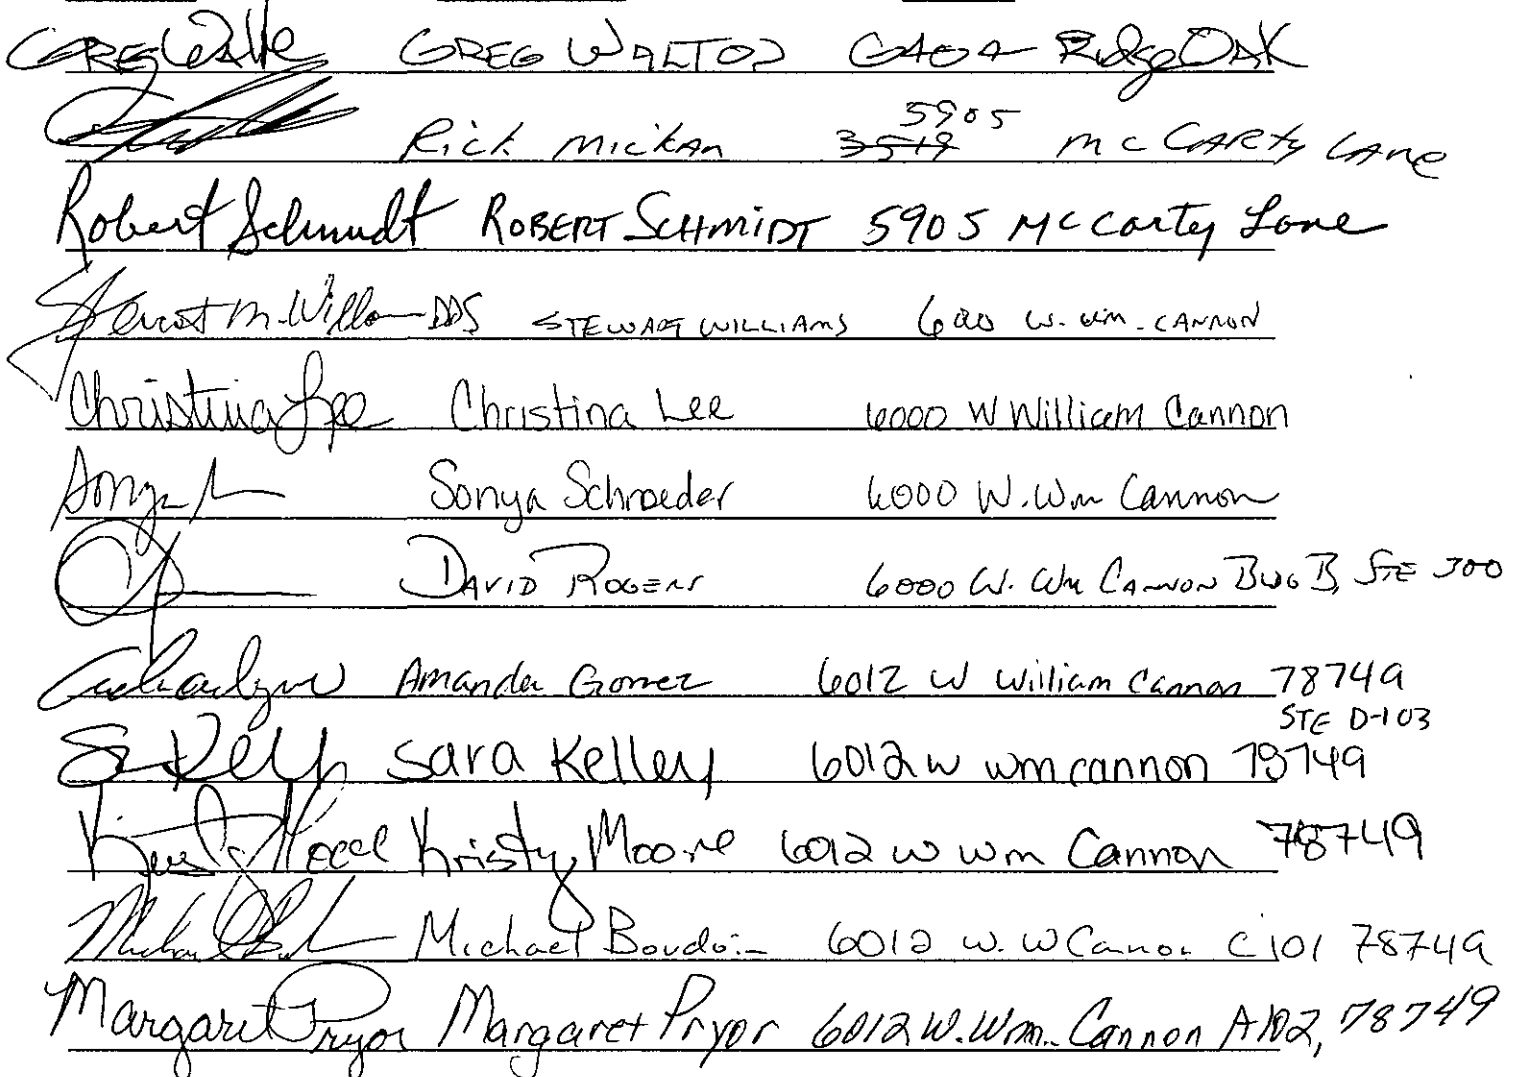 Greg Walton GREG WALTON 6404 Ridge OAK
Rick Mickan 5905 3519 McCarty Lane
Robert Schmidt ROBERT SCHMIDT 5905 McCarty Lane
Stewart M. Williams DDS STEWART WILLIAMS 600 W. Wm. CANNON
Christina Lee Christina Lee 6000 W William Cannon
Sonya Sonya Schroeder 6000 W. Wm Cannon
DAVID ROGERS 6000 W. Wm CANNON BLDG B, STE 300
Amanda Gomez 6012 W William Cannon 78749
STE D-103
Sara Kelley 6012 W Wm Cannon 78749
Kristy Moore Kristy Moore 6012 W Wm Cannon 78749
Michael Boudoin 6012 W. W Cannon C101 78749
Margaret Pryor Margaret Pryor 6012 W. Wm. Cannon A102, 78749